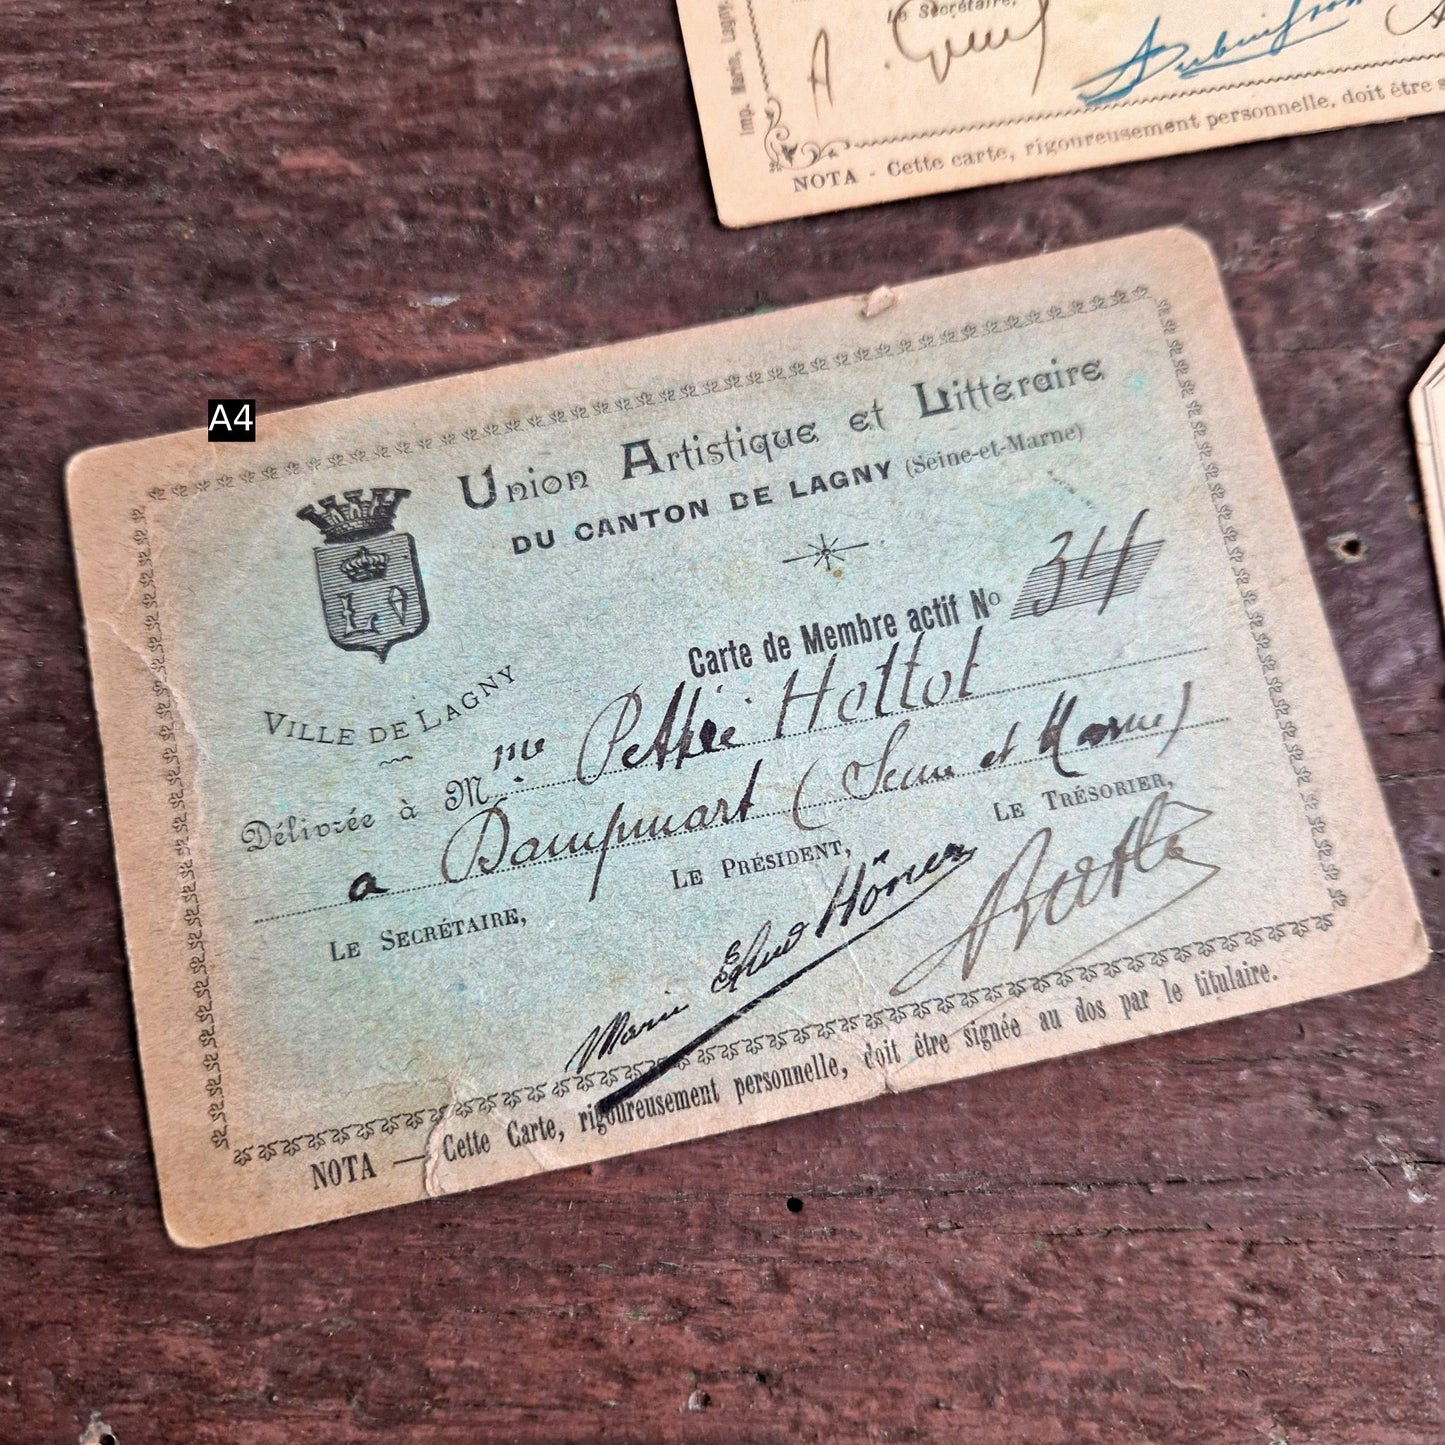 Imp. Lagny
Le Secrétaire,
A
NOTA - Cette carte, rigoureusement personnelle, doit être
A4
Union Artistique et Littéraire
DU CANTON DE LAGNY (Seine-et-Marne)
Carte de Membre actif No 34
VILLE DE LAGNY
Délivrée à Mme Hottot
a Dampmart (Seine et Marne)
LE SECRÉTAIRE, LE PRÉSIDENT, LE TRÉSORIER,
NOTA — Cette Carte, rigoureusement personnelle, doit être signée au dos par le titulaire.